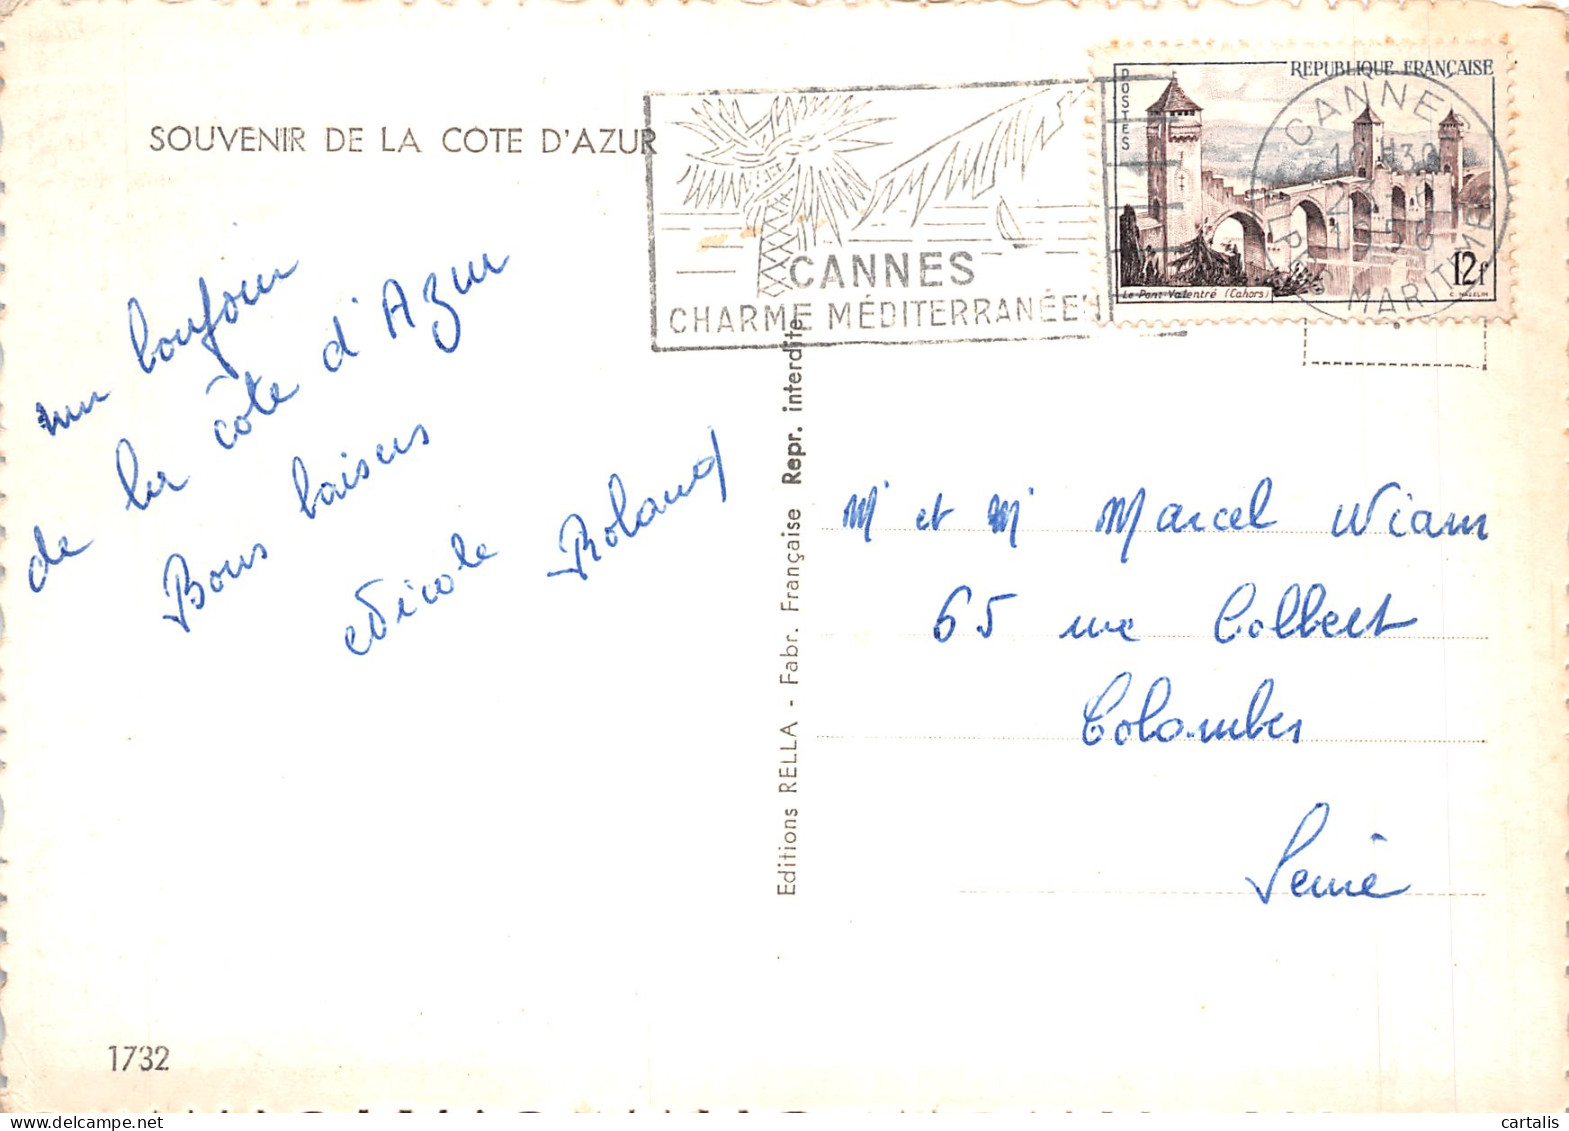 SOUVENIR DE LA COTE D'AZUR
un bonjour
de la côte d'Azur
Bons baisers
Nicole Roland
1732
Editions RELLA - Fabr. Française Repr. interdite
CANNES
CHARME MÉDITERRANÉEN
REPUBLIQUE FRANÇAISE
POSTES
12f
Le Pont Valentré (Cahors)
C. MAZELIN
CANNES
1956
ALPES MARITIMES
Mr et Me Marcel Wiam
65 rue Colbert
Colombes
Seine
cartalis